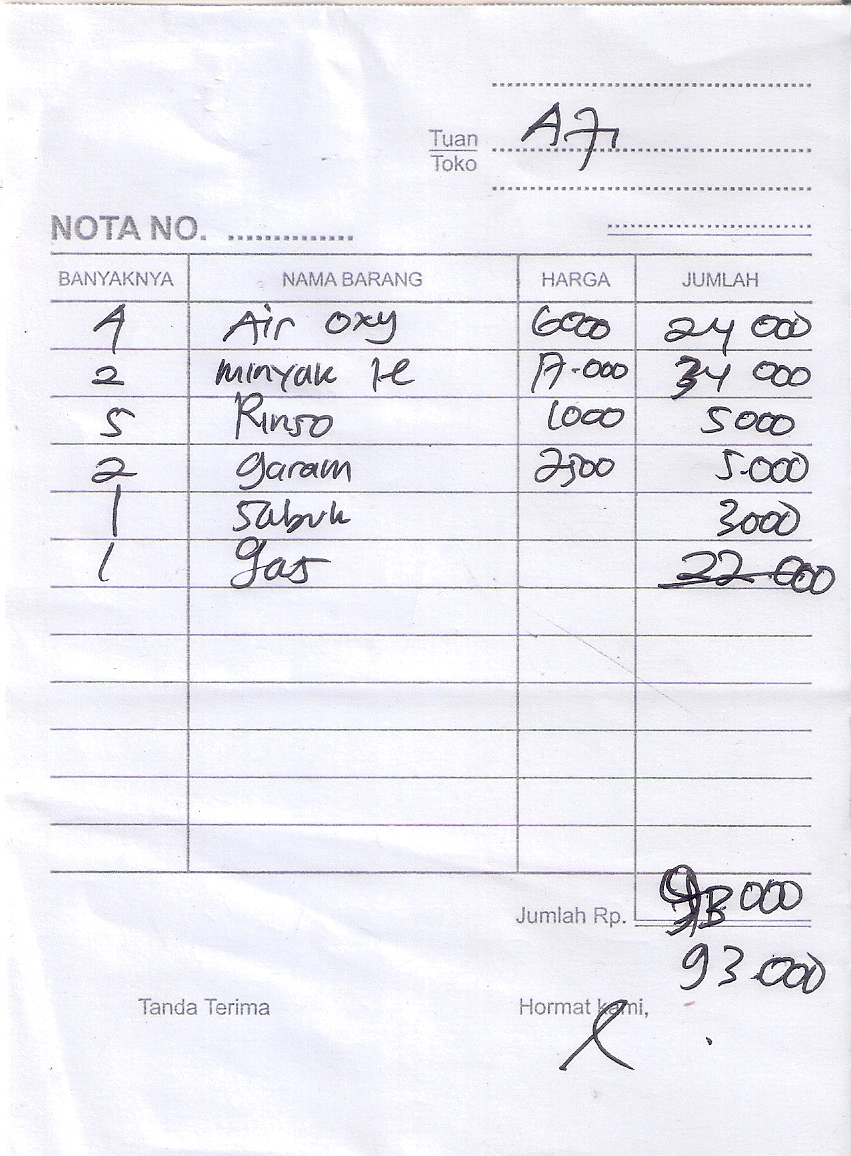 Tuan A7
Toko
NOTA NO. ..............
BANYAKNYA NAMA BARANG HARGA JUMLAH
4 Air oxy 6000 24 000
2 minyak 17.000 34 000
5 Rinso 1000 5000
2 garam 2500 5.000
1 Sabuk 3000
1 gas 22.000
Jumlah Rp. 000
93.000
Tanda Terima Hormat kami,